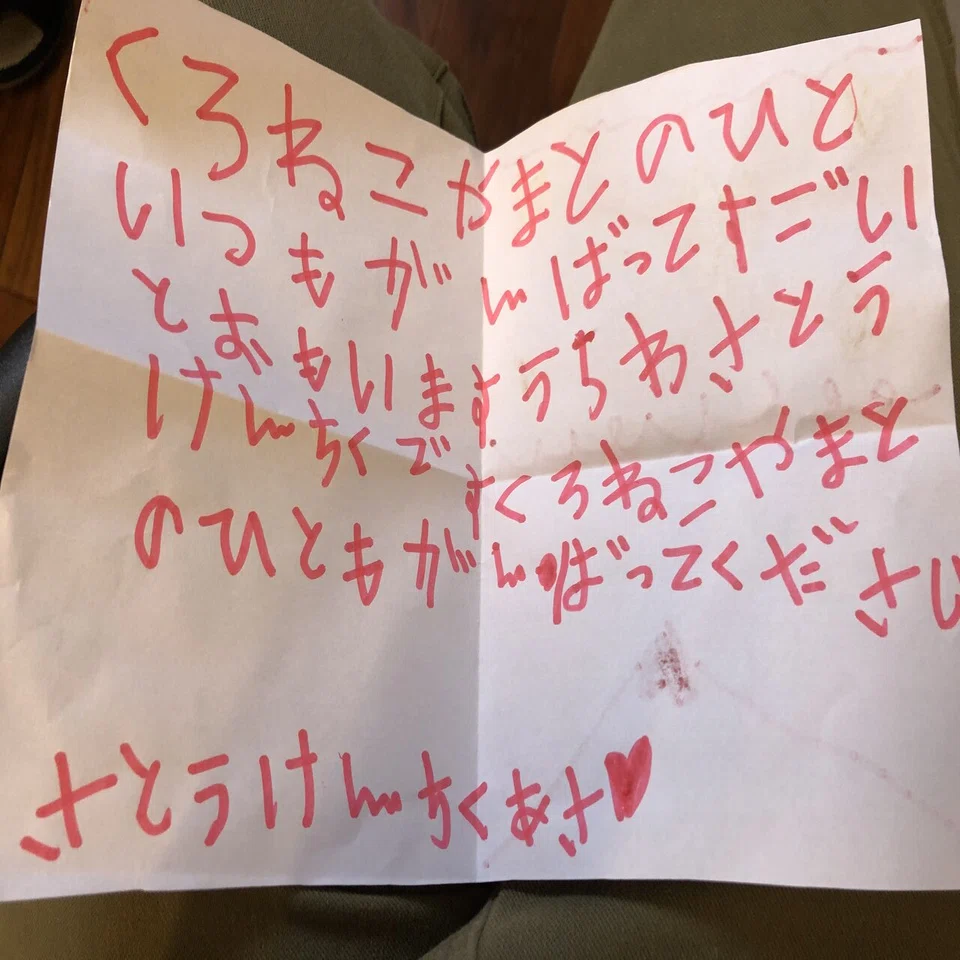 くろねこやまとのひと
いつもがんばってすごい
とおもいます うちわさとう
けんちくです くろねこやまと
のひともがんばってください
さとうけんちくあさ